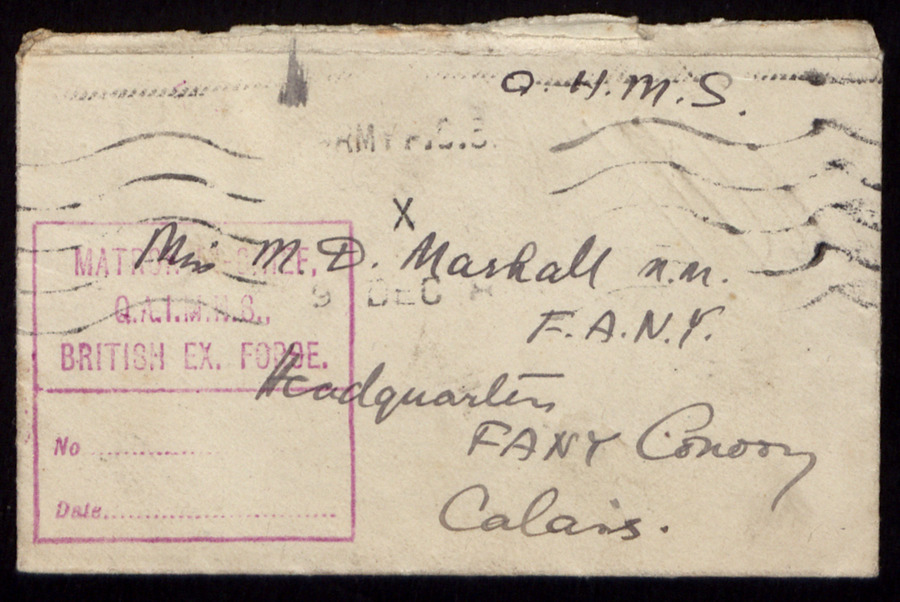 O.H.M.S.
ARMY P.O.S.
X
Miss M. D. Marshall M.M.
F.A.N.Y.
Headquarters
FANY Convoy
Calais.
9 DEC
MATRON-IN-CHIEF,
Q.A.I.M.N.S.,
BRITISH EX. FORCE.
No
Date